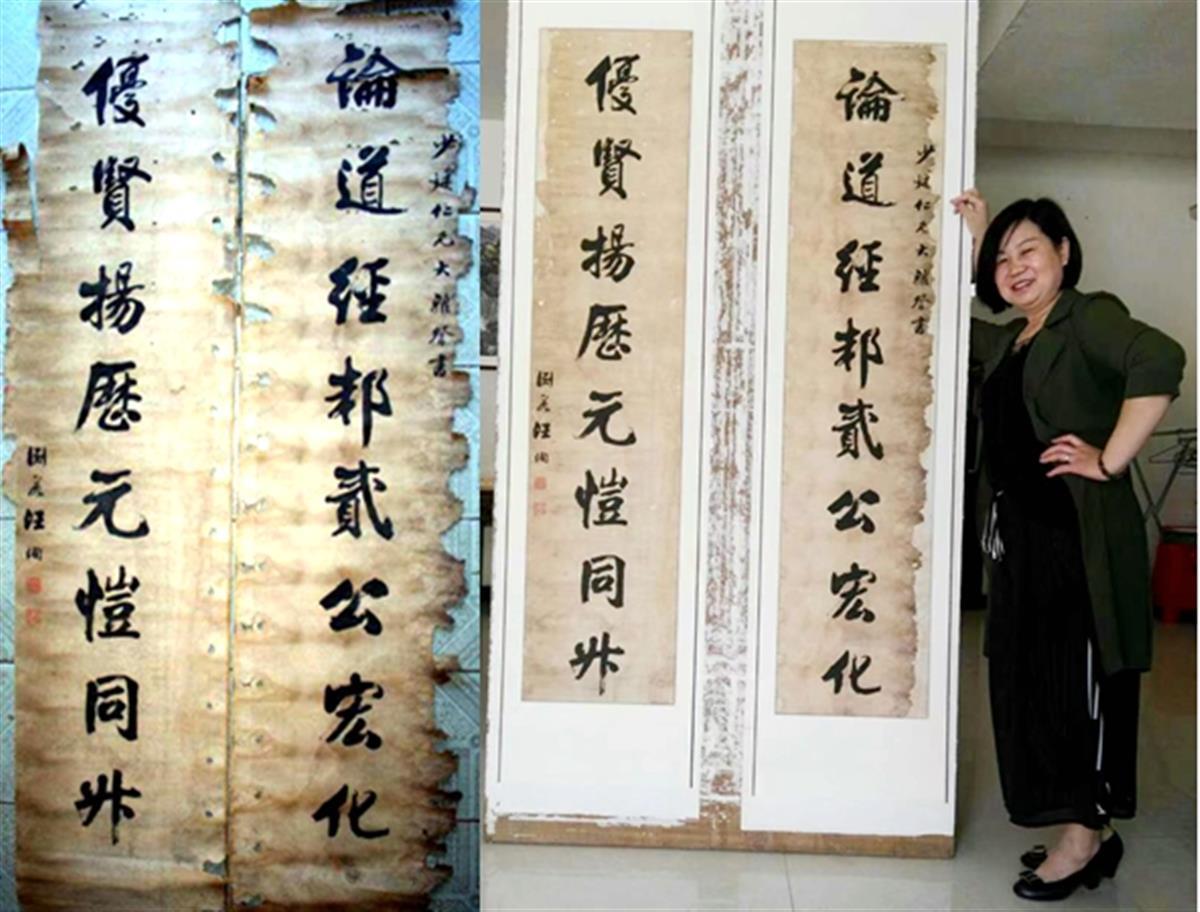 論道經邦貳公宏化
少仁兄大雅詧書
優賢揚歷元愷同升
淵若汪洵
論道經邦貳公宏化
少仁兄大雅詧書
優賢揚歷元愷同升
淵若汪洵